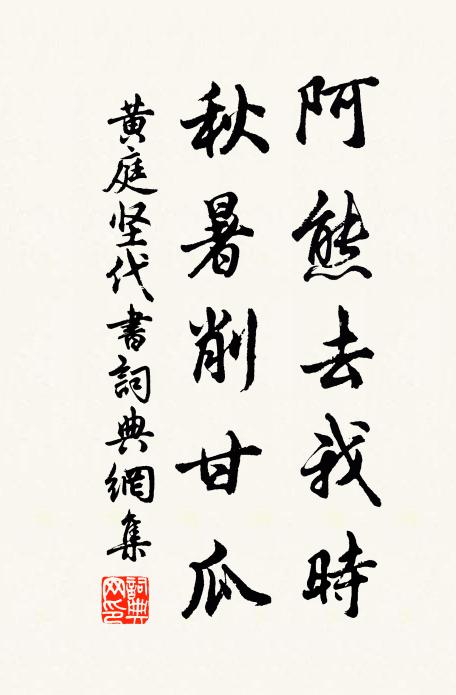 阿熊去我時
秋暑削甘瓜
黄庭坚代書詞典網集
詞典網印